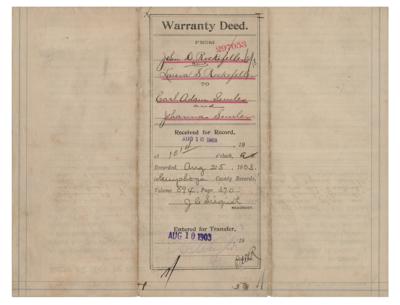 Warranty Deed.
FROM
297053
John D. Rockefeller
Laura S. Rockefeller
TO
Carl Adam
and
Johanna
Received for Record,
AUG 10 1903 19
at 10 o'clock, A
Recorded Aug 25 1903
Cuyahoga County Records,
Volume 894, Page 270
RECORDER.
Entered for Transfer,
AUG 10 1903 19